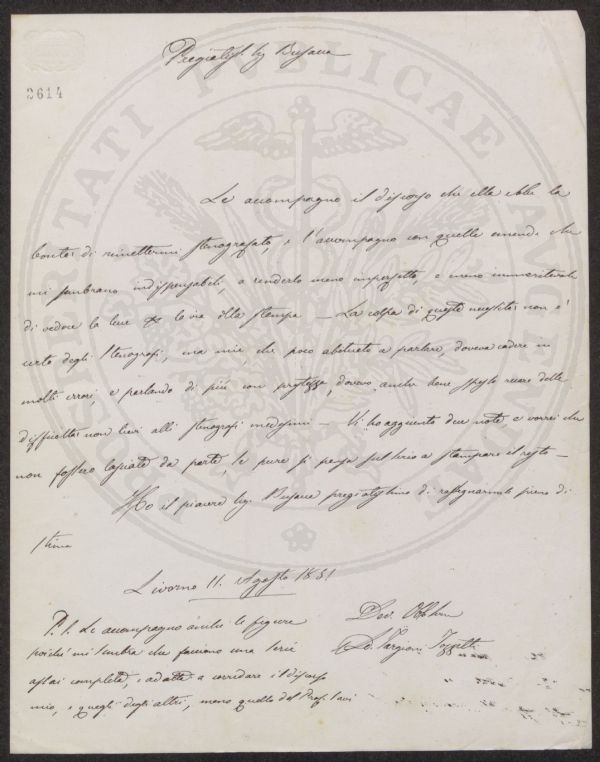 2614
Le accompagno il discorso che ella ebbe la
bontà di rimettermi stenografato, e l'accompagno con quelle emende che
mi sembrano indispensabili, a renderlo meno imperfetto, e meno immeritevole
di vedere la luce per la via della stampa — La colpa di queste necessità non è
certo degli Stenografi, ma mia, che poco abituato a parlare, doveva cadere in
molti errori, e parlando di più con prestezza, dovevo anche bene spesso recare delle
difficoltà non lievi alli stenografi medesimi — Vi ho aggiunto due note e vorrei che
non fossero lasciate da parte, se pure si pensa sul serio a stampare il resto —
Ho il piacere Sig. pregiatissimo di rassegnarmele pieno di
stima
Livorno 11. Agosto 1851
Dev. Obb.
Targioni Tozzetti
P.S. Le accompagno anche le figure
poiché mi sembra che facciano una serie
assai completa, e adatta a corredare il discorso
mio, e quegli degli altri, meno quello del Prof. Savi